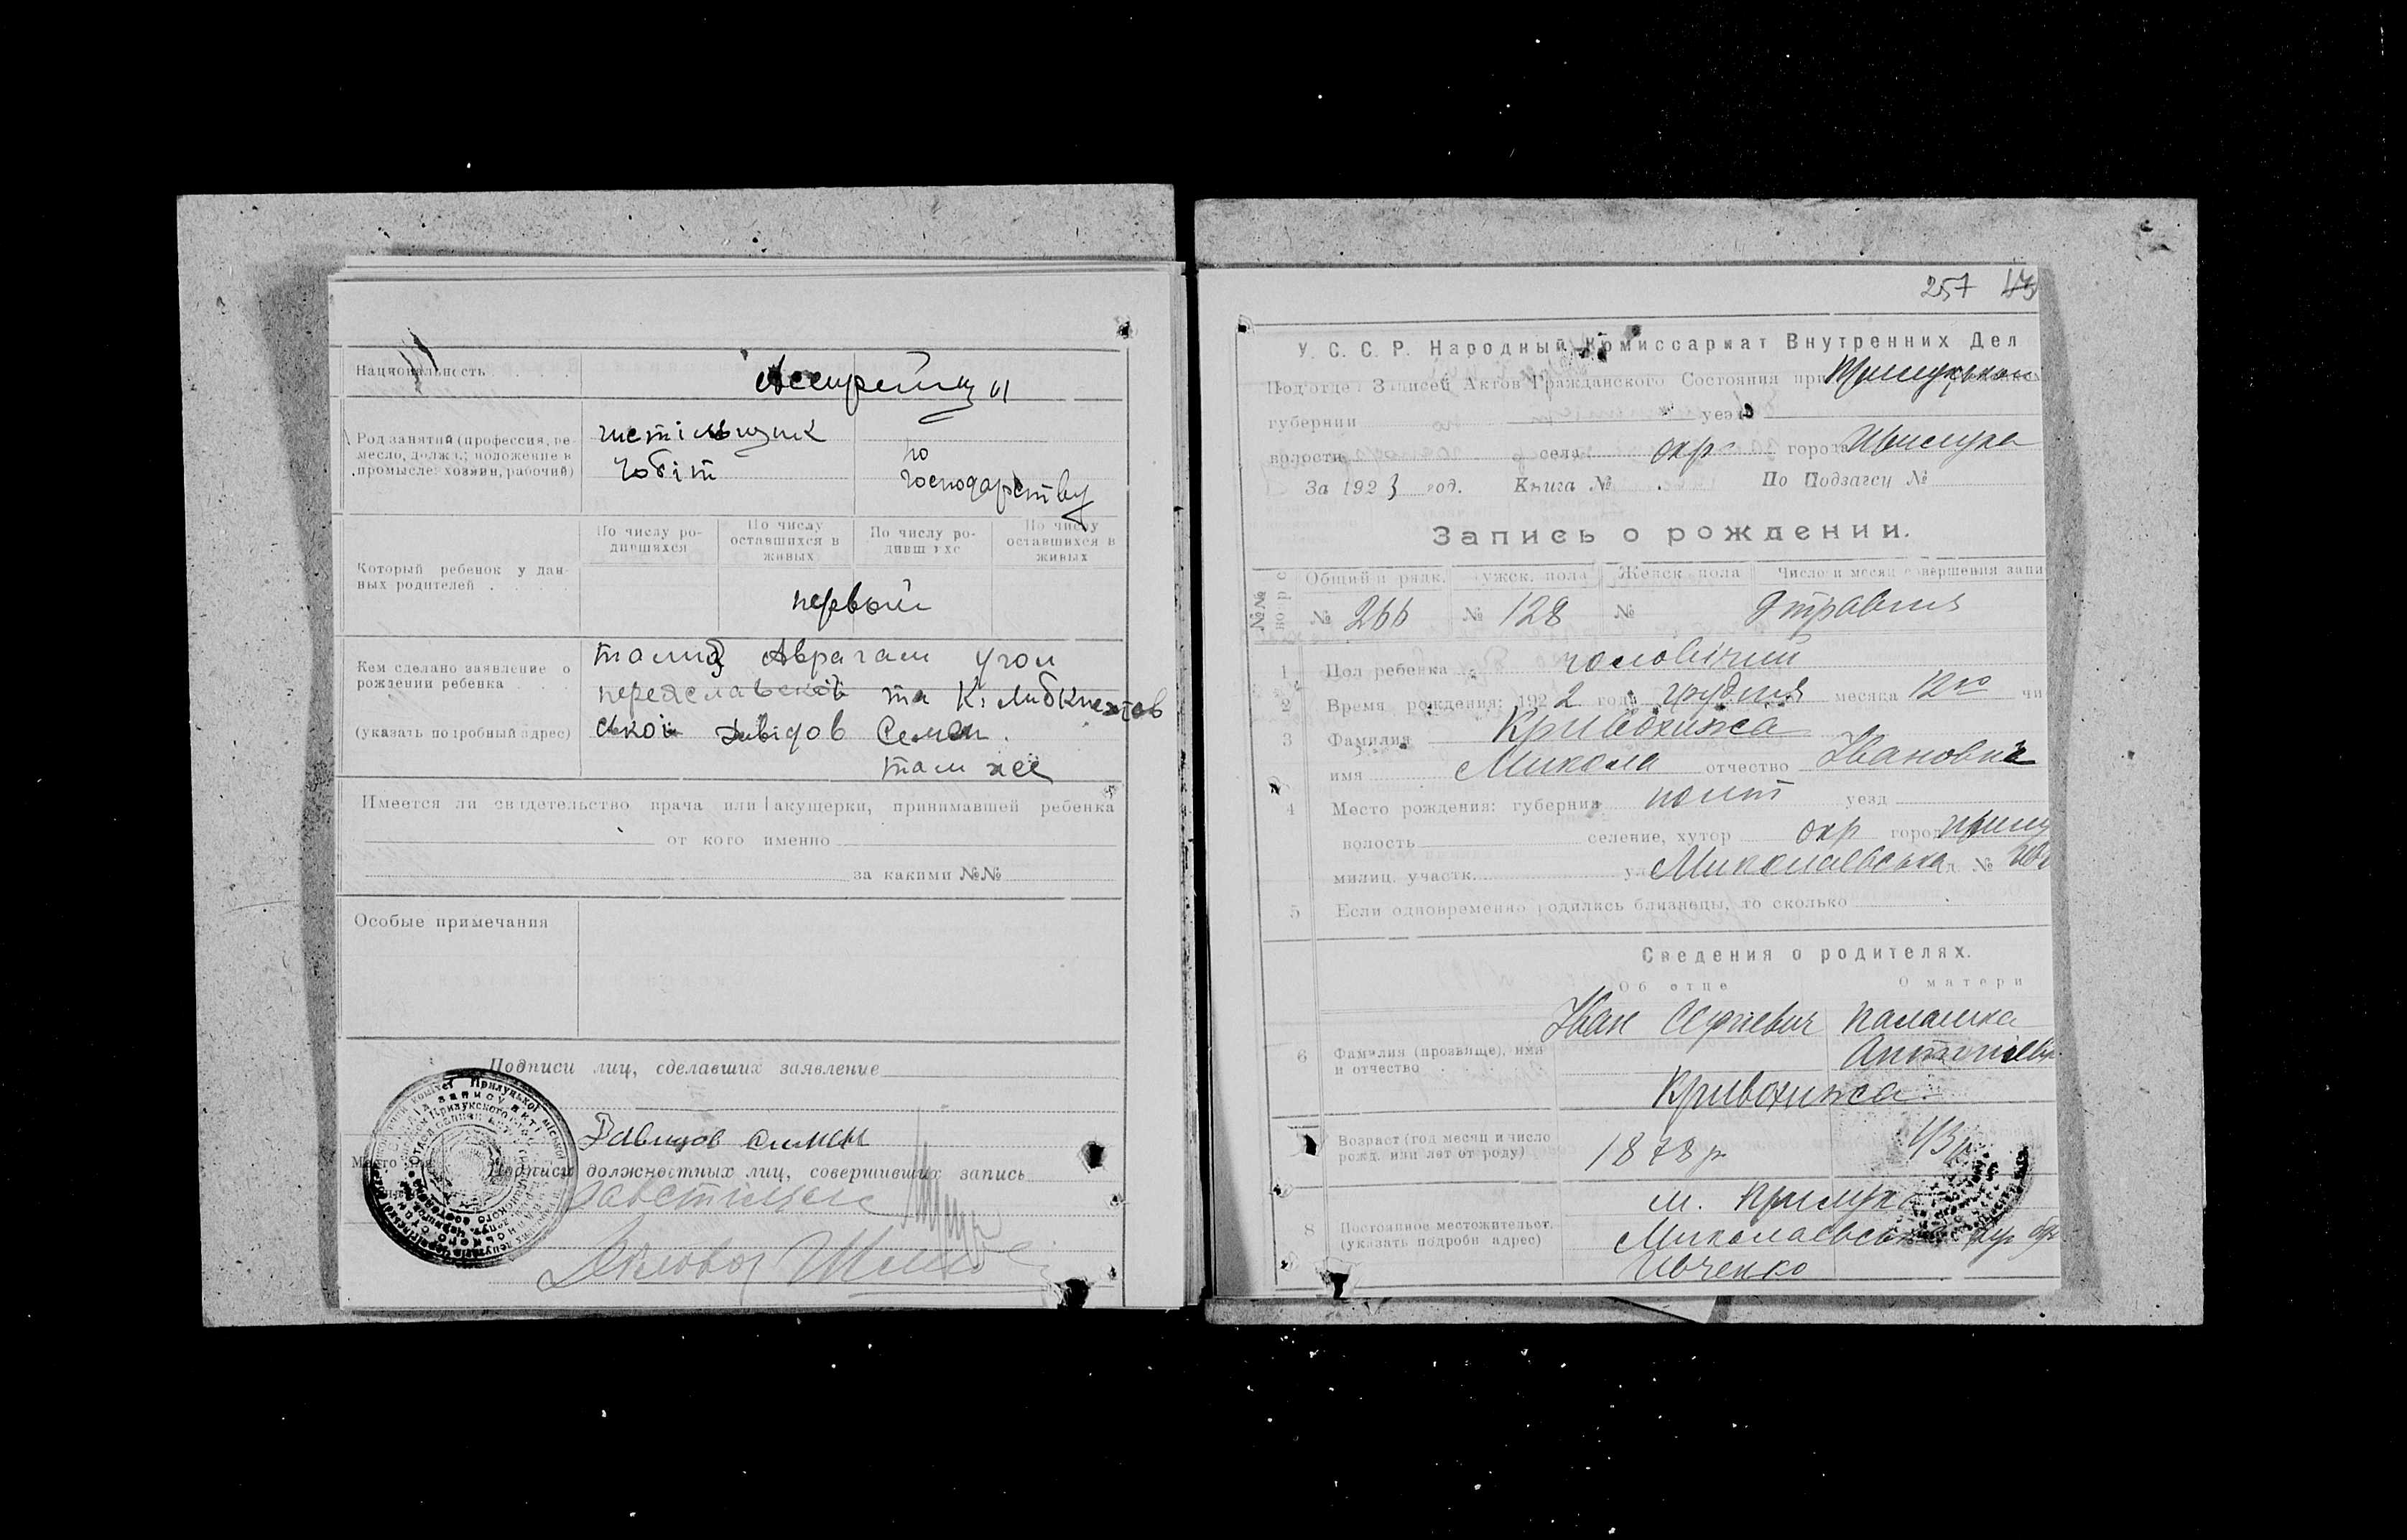 Национальность
Ассирейцы
Род занятий (профессия, ре-
месло, должн.; положение в
промысле: хозяин, рабочий)
чистільщик
чобіт
по
господарству
По числу ро-
дившихся
По числу
оставшихся в
живых
По числу ро-
дивш хс
По числу
оставшихся в
живых
Который ребенок у дан-
ных родителей
первый
Кем сделано заявление о
рождении ребенка
(указать подробный адрес)
Аврагам угол
переяславской та К. Либкнехтов
ской Давідов Семен.
там же
Имеется ли свидетельство врача или акушерки, принимавшей ребенка
от кого именно
за какими №№
Особые примечания
Подписи лиц, сделавших заявление
Давидов Симон
Место
Подписи должностных лиц, совершивших запись
257
У. С. С. Р. Народный Комиссариат Внутренних Дел
Подотдел Записей Актов Гражданского Состояния при Прилуцьком
губернии уезд
волости села окр города Прилука
За 1923 год. Книга № По Подзагсу №
Запись о рождении.
№№ по р с
Общий п рядк. Мужск. пола Женск. пола Число и месяц совершения запи
№ 266 № 128 № 9 травня
1 Пол ребенка чоловічий
2 Время рождения: 1922 года грудня месяца 12го чи
3 Фамилия Кривохижа
имя Микола отчество Іванович
4 Место рождения: губерния полт уезд
волость селение, хутор окр город прилу
милиц. участк. ул. Миколаевська д. №
5 Если одновременно родились близнецы, то сколько
Сведения о родителях.
Об отце О матери
6 Фамилия (прозвище), имя
и отчество
Іван Палашка
Кривохижа
Возраст (год месяц и число
рожд. или лет от роду)
1878 р 43 р
8 Постоянное местожительст.
(указать подробн адрес)
м. Прилука
Миколаевськ
Ивченко